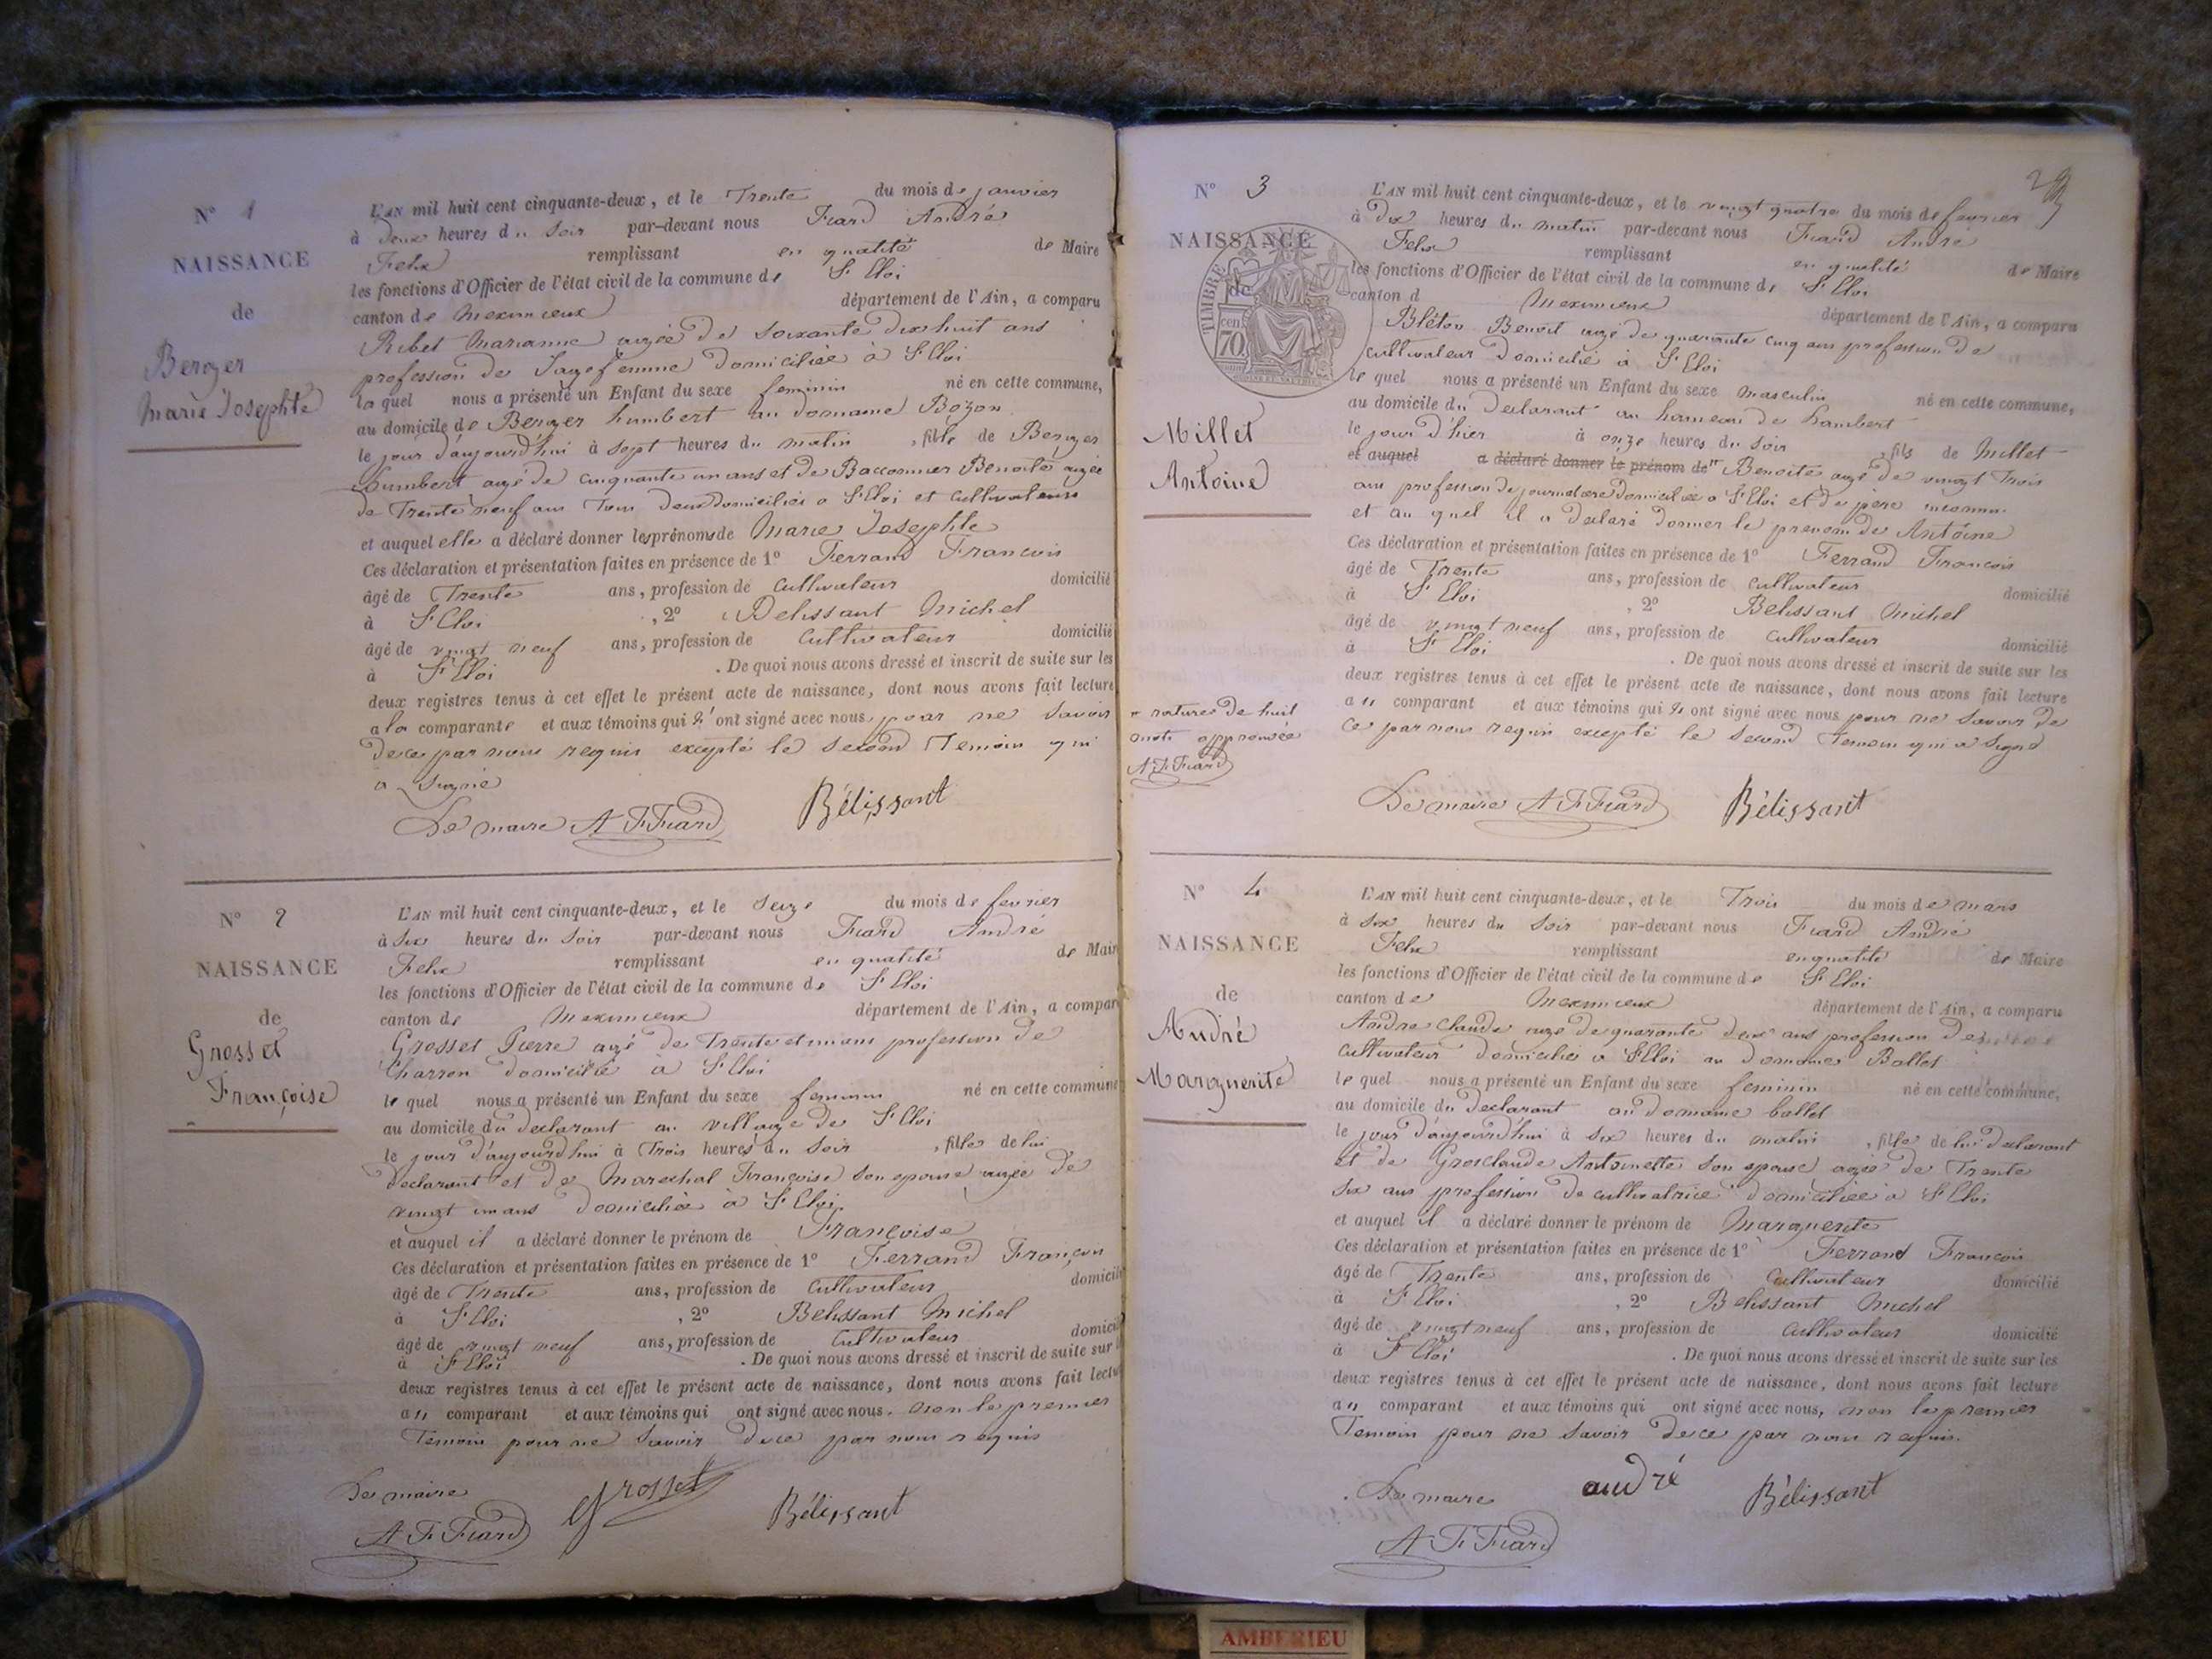 N° 1
NAISSANCE
de
Berger
Marie Josephte
L'AN mil huit cent cinquante-deux, et le Trente du mois de janvier
à deux heures du soir par-devant nous Fiard André
Felix remplissant en qualité de Maire
les fonctions d'Officier de l'état civil de la commune de St Eloi
canton de Meximieux département de l'Ain, a comparu
Ribet Marianne agée de soixante dix huit ans
profession de Sage femme domiciliée à St Eloi
la quel nous a présenté un Enfant du sexe feminin né en cette commune,
au domicile de Berger humbert au domaine Bozon
le jour d'aujourd'hui à sept heures du matin, fille de Berger
humbert agé de cinquante un ans et de Baccomier Benoite agée
de Trente neuf ans Tous deux domiciliés a St Eloi et cultivateurs
et auquel elle a déclaré donner les prénoms de Marie Josephte
Ces déclaration et présentation faites en présence de 1° Ferrand Francois
âgé de Trente ans, profession de cultivateur domicilié
à St Eloi, 2° Belissant Michel
âgé de vingt neuf ans, profession de cultivateur domicilié
à St Eloi. De quoi nous avons dressé et inscrit de suite sur les
deux registres tenus à cet effet le présent acte de naissance, dont nous avons fait lecture
a la comparante et aux témoins qui n'ont signé avec nous pour ne savoir
de ce par nous requis excepté le second Temoin qui
a signé
Le maire A F Fiard Bélissant
N° 2
NAISSANCE
de
Grosset
Françoise
L'AN mil huit cent cinquante-deux, et le seize du mois de fevrier
à six heures du soir par-devant nous Fiard André
Felix remplissant en qualité de Mair
les fonctions d'Officier de l'état civil de la commune de St Eloi
canton de Meximieux département de l'Ain, a compar
Grosset Pierre agé de Trente et un ans profession de
Charron domicilié à St Eloi
le quel nous a présenté un Enfant du sexe feminin né en cette commune
au domicile du declarant au village de St Eloi
le jour d'aujourd'hui à Trois heures du soir, fille de lui
declarant et de Marechal Françoise son epouse agée de
vingt un ans domiciliée à St Eloi
et auquel il a déclaré donner le prénom de Françoise
Ces déclaration et présentation faites en présence de 1° Ferrand François
âgé de Trente ans, profession de cultivateur domicili
à St Eloi, 2° Belissant Michel
âgé de vingt neuf ans, profession de cultivateur domicil
à St Eloi. De quoi nous avons dressé et inscrit de suite sur
deux registres tenus à cet effet le présent acte de naissance, dont nous avons fait lectu
au comparant et aux témoins qui ont signé avec nous. non le premier
Temoin pour ne savoir de ce par nous requis
Le maire
A F Fiard Grosset Bélissant
29
N° 3
NAISSANCE
de
TIMBRE
70
Millet
Antoine
L'AN mil huit cent cinquante-deux, et le vingt quatre du mois de fevrier
à dix heures du matin par-devant nous Fiard André
Felix remplissant en qualité de Maire
les fonctions d'Officier de l'état civil de la commune de St Eloi
canton d Meximieux département de l'Ain, a comparu
Bléton Benoit agé de quarante cinq ans profession de
cultivateur domicilié à St Eloi
le quel nous a présenté un Enfant du sexe masculin né en cette commune,
au domicile du declarant au hameau de Lambert
le jour d'hier à onze heures du soir, fils de Millet
et auquel a déclaré donner le prénom de Benoite agé de vingt Trois
ans profession de journaliere domiciliée a St Eloi et de pere inconnu
et au quel il a declaré donner le prenom de Antoine
Ces déclaration et présentation faites en présence de 1° Ferrand Francois
âgé de Trente ans, profession de cultivateur domicilié
à St Eloi, 2° Belissant Michel
âgé de vingt neuf ans, profession de cultivateur domicilié
à St Eloi. De quoi nous avons dressé et inscrit de suite sur les
deux registres tenus à cet effet le présent acte de naissance, dont nous avons fait lecture
au comparant et aux témoins qui n ont signé avec nous pour ne savoir de
ce par nous requis excepté le second Temoin qui a signé
rature de huit
mots approuvée
A F Fiard
Le maire A F Fiard Bélissant
N° 4
NAISSANCE
de
André
Marguerite
L'AN mil huit cent cinquante-deux, et le Trois du mois de mars
à six heures du soir par-devant nous Fiard André
Felix remplissant en qualité de Maire
les fonctions d'Officier de l'état civil de la commune de St Eloi
canton de Meximieux département de l'Ain, a comparu
Andre Claude agé de quarante deux ans profession de
cultivateur domicilié a St Eloi au domaine Ballet
le quel nous a présenté un Enfant du sexe feminin né en cette commune,
au domicile du declarant au domaine ballet
le jour d'aujourd'hui à six heures du matin, fille de lui declarant
et de Grosclaude Antoinette son epouse agée de Trente
six ans profession de cultivatrice domiciliée a St Eloi
et auquel il a déclaré donner le prénom de Marguerite
Ces déclaration et présentation faites en présence de 1° Ferrand Francois
âgé de Trente ans, profession de cultivateur domicilié
à St Eloi, 2° Belissant Michel
âgé de vingt neuf ans, profession de cultivateur domicilié
à St Eloi. De quoi nous avons dressé et inscrit de suite sur les
deux registres tenus à cet effet le présent acte de naissance, dont nous avons fait lecture
au comparant et aux témoins qui ont signé avec nous, non le premier
Temoin pour ne savoir de ce par nous requis.
Le maire andré Bélissant
A F Fiard
AMBERIEU